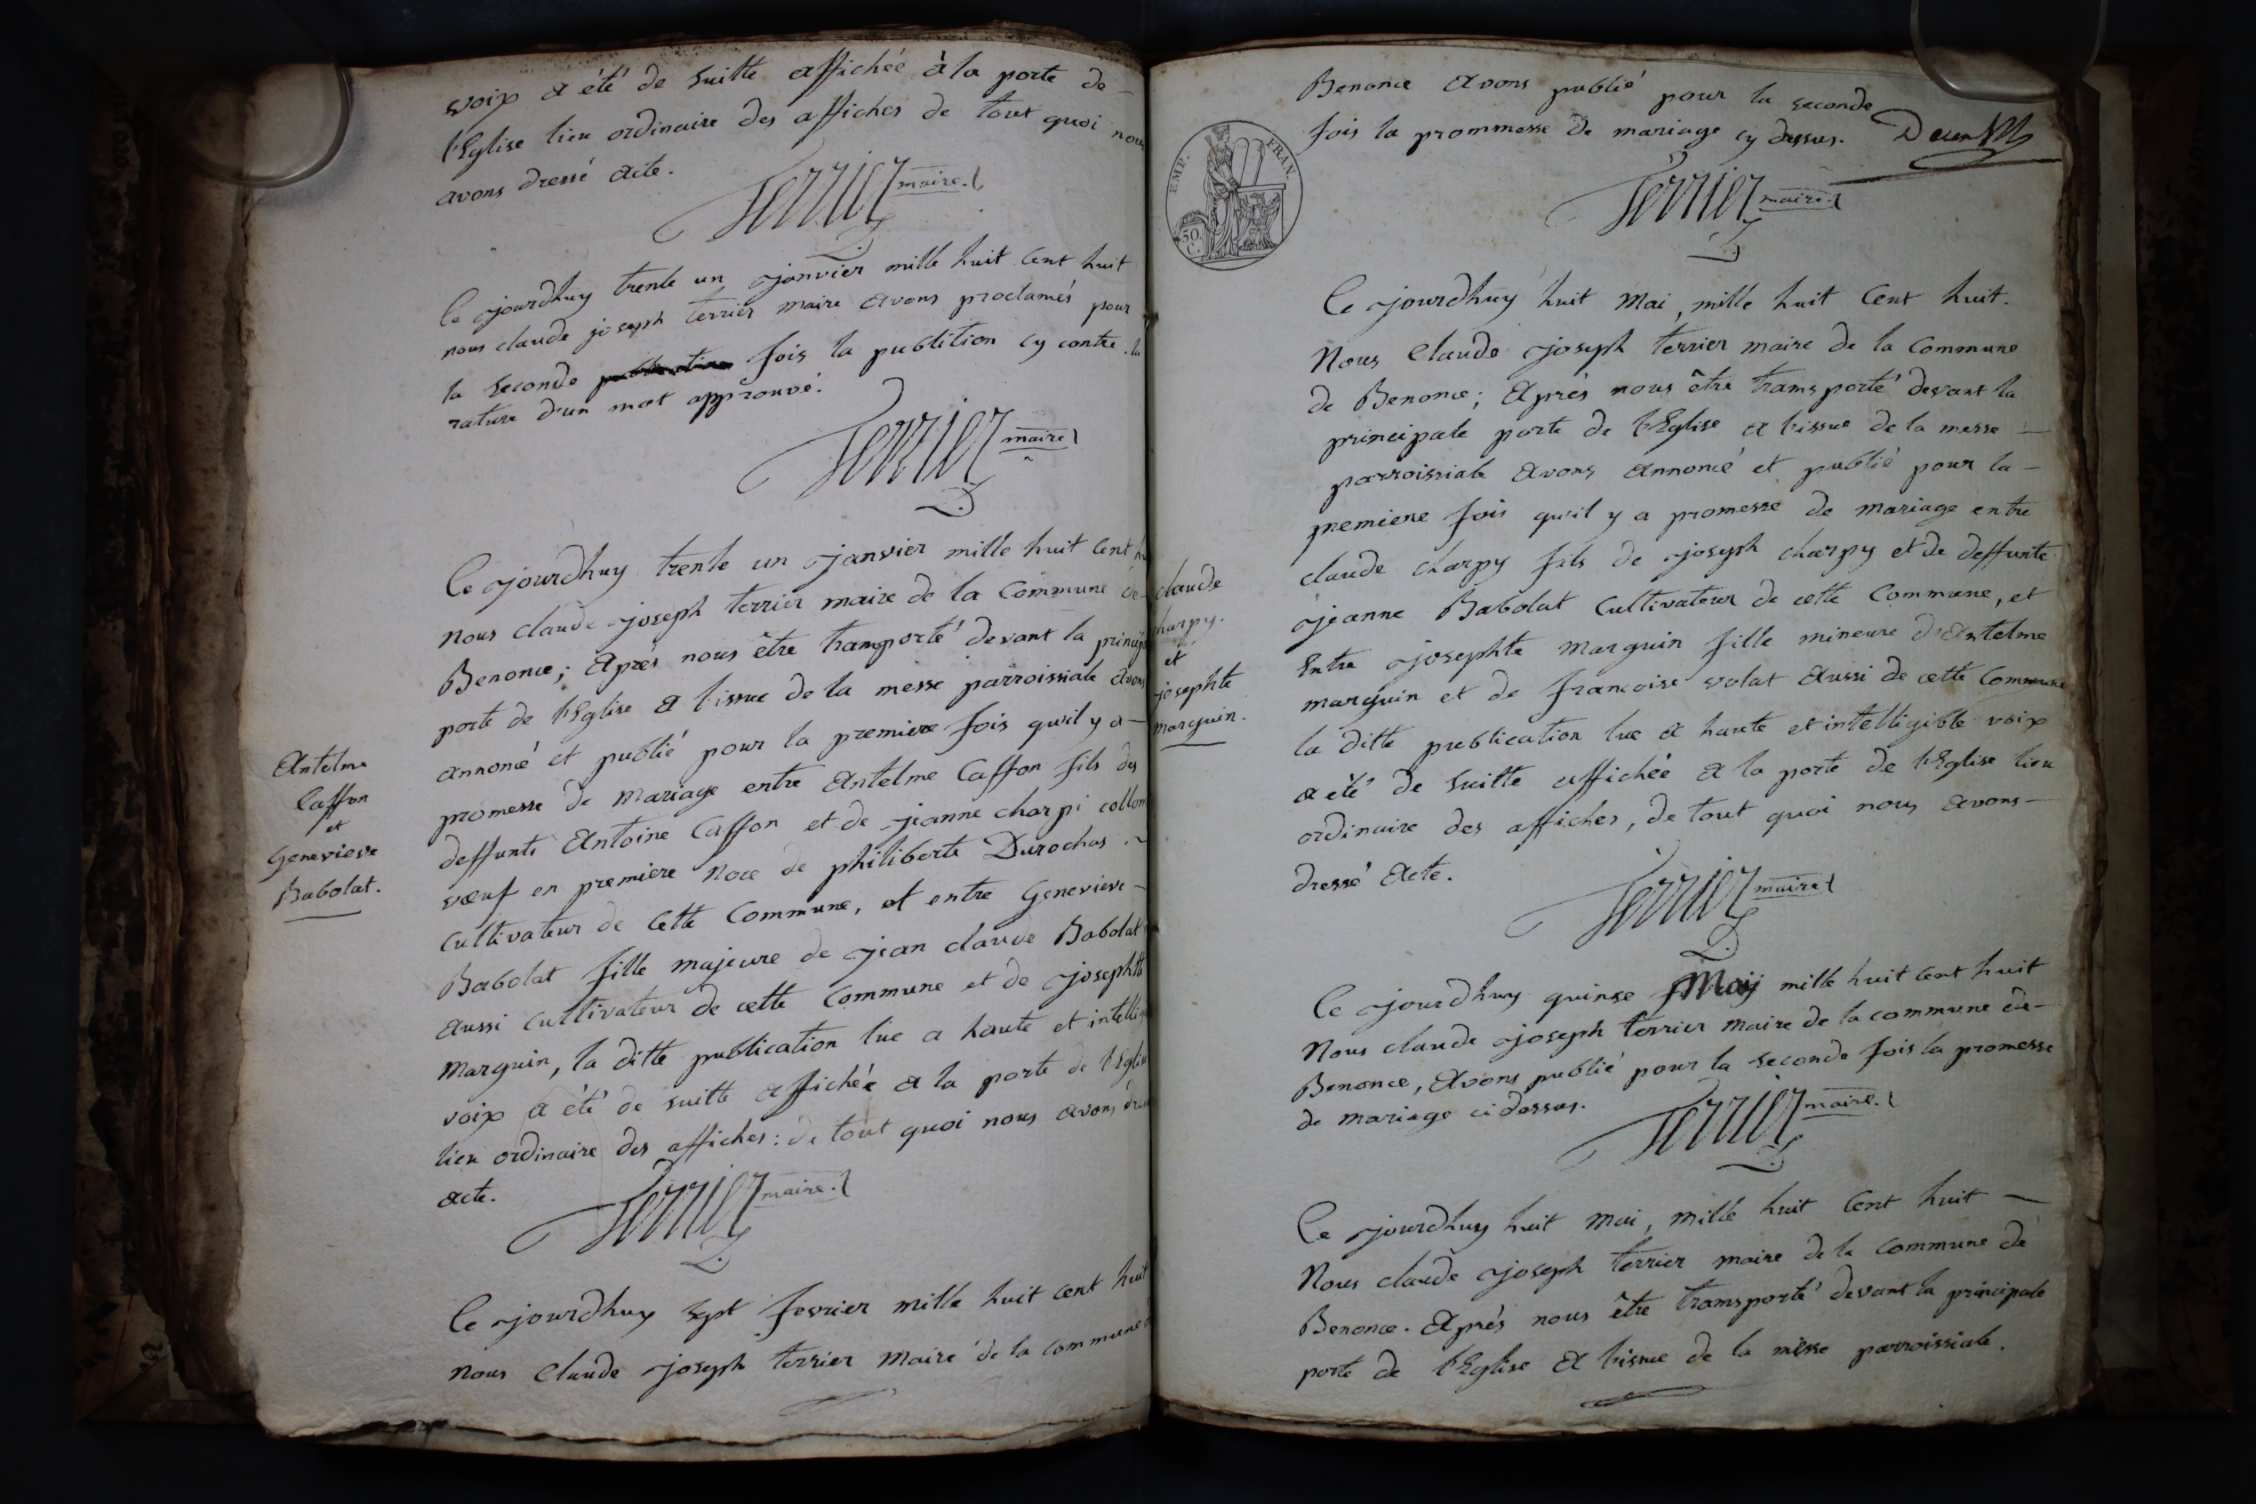 voix a été de suitte affichée à la porte de
l'Eglise lieu ordinaire des affiches de tout quoi nous
avons dressé acte.
Terrier maire.
Ce jourdhuy trente un janvier mille huit cent huit
nous claude joseph terrier maire avons proclamés pour
la seconde fois la publition cy contre. la
rature d'un mot approuvé.
Terrier maire
Ce jourdhuy trente un janvier mille huit cent
nous claude joseph terrier maire de la Commune de
Benonce; Après nous être transporté devant la princip
porte de l'Eglise a l'issue de la messe parroissiale avons
annoncé et publié pour la premiere fois qu'il y a
promesse de mariage entre Antelme Caffon fils des
deffunts Antoine Caffon et de jeanne charpi collom
vœuf en premiere Noce de philiberte Durochas
Cultivateur de Cette Commune, et entre Genevieve
Babolat fille majeure de jean claude Babolat
aussi cultivateur de cette Commune et de josephte
Marguin, la ditte publication lue a haute et intellig
voix a été de suitte affichée a la porte de l'Eglise
lieu ordinaire des affiches: de tout quoi nous avons dressé
acte.
Terrier maire.
Antelme
Caffon
et
Genevieve
Babolat.
Ce jourdhuy sept fevrier mille huit cent huit
nous Claude joseph terrier Maire de la commune
Benonce avons publié pour la seconde
fois la prommesse de mariage cy dessus.
Terrier maire.
EMP. FRAN.
50
C.
Ce jourdhuy huit Mai, mille huit Cent huit.
Nous Claude joseph terrier maire de la Commune
de Benonce; Après nous être transporté devant la
principale porte de l'Eglise a l'issue de la messe
parroissiale avons annoncé et publié pour la
premiere fois qu'il y a promesse de mariage entre
claude charpy fils de joseph charpy et de deffunte
jeanne Babolat Cultivateur de cette Commune, et
Entre josephte Marguin fille mineure d'Antelme
marguin et de francoise volat aussi de cette Commune
la ditte publication lue a haute et intelligible voix
a été de suitte affichée a la porte de l'Eglise lieu
ordinaire des affiches, de tout quoi nous avons
dressé Acte.
Terrier maire
claude
harpy.
et
josephte
marguin.
Ce jourdhuy quinse May mille huit cent huit
Nous claude joseph terrier Maire de la commune de
Benonce, avons publié pour la seconde fois la promesse
de mariage ci dessus.
Terrier maire.
Ce jourdhuy huit Mai, mille huit Cent huit
Nous claude joseph terrier maire de la Commune de
Benonce. Après nous être transporté devant la principale
porte de l'Eglise a l'issue de la messe parroissiale.